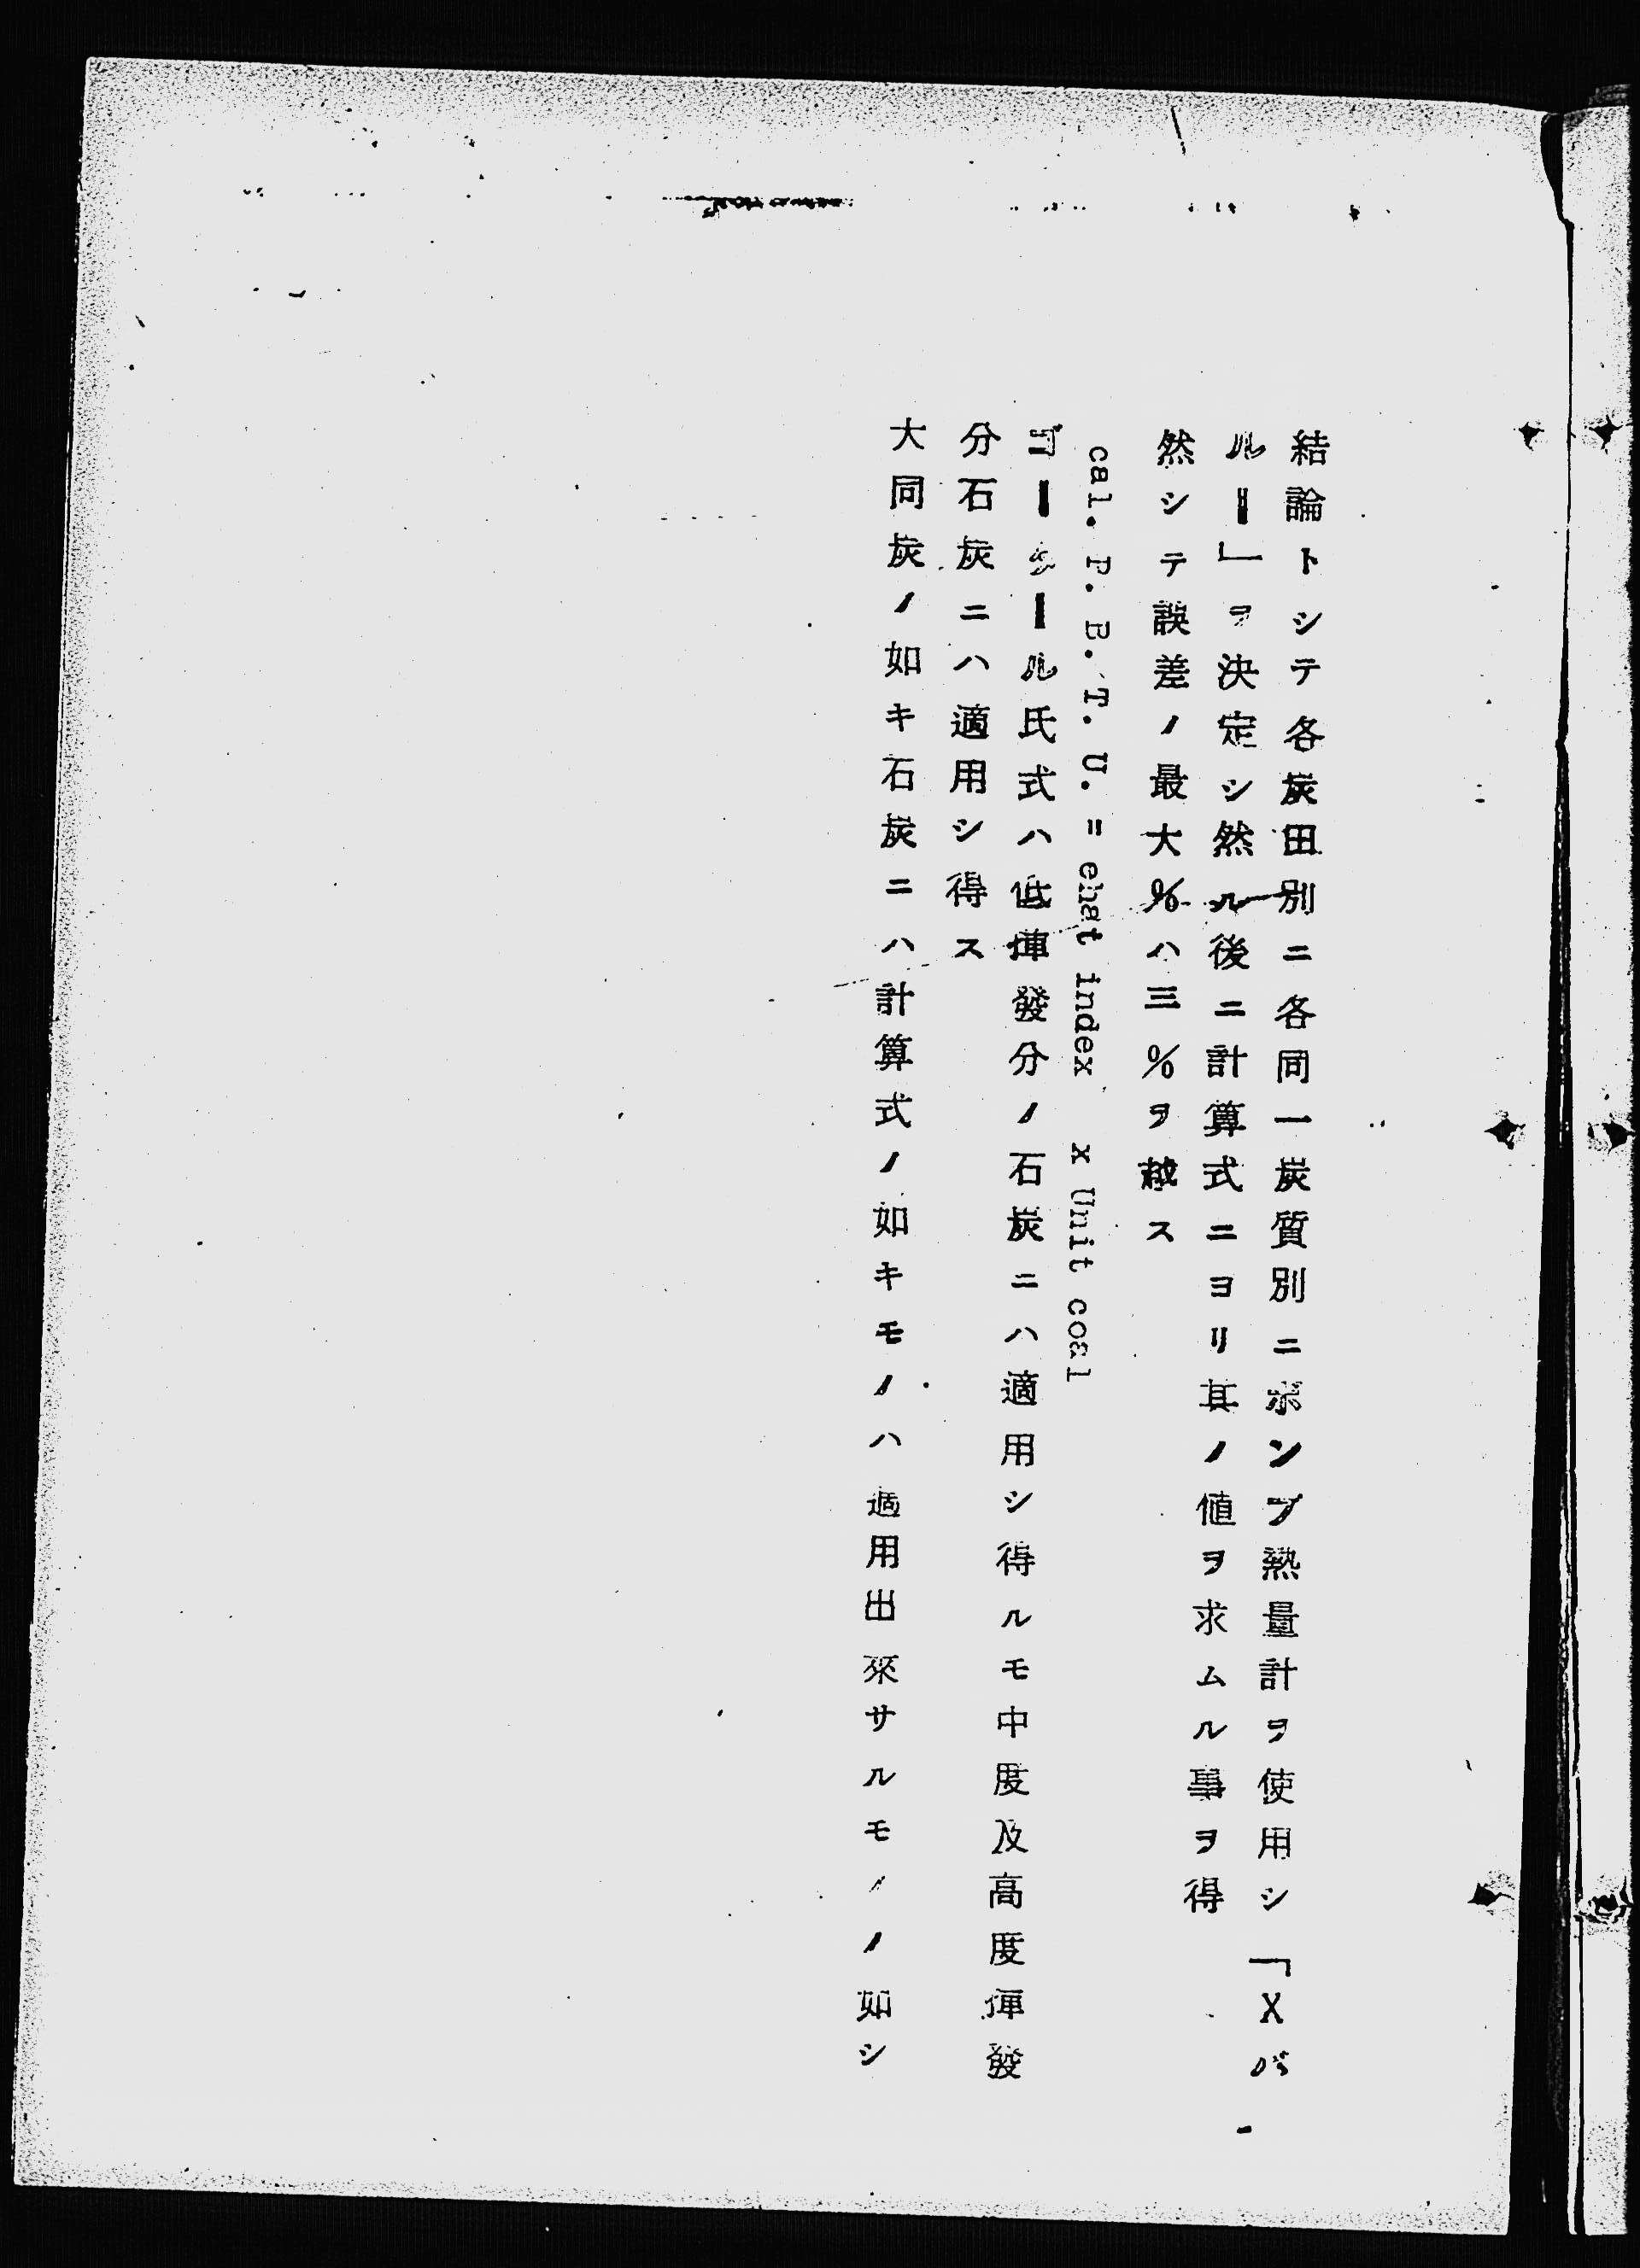 結論トシテ各炭田別ニ各同一炭質別ニボンブ熱量計ヲ使用シ「Xバ
ルー」ヲ決定シ然ル後ニ計算式ニヨリ其ノ値ヲ求ムル事ヲ得
然シテ誤差ノ最大%ハ三%ヲ越ス
cal. P. B. T. U. = ehat index x Unit coal
ゴータール氏式ハ低揮發分ノ石炭ニハ適用シ得ルモ中度及高度揮發
分石炭ニハ適用シ得ス
大同炭ノ如キ石炭ニハ計算式ノ如キモノハ適用出來サルモノノ如シ